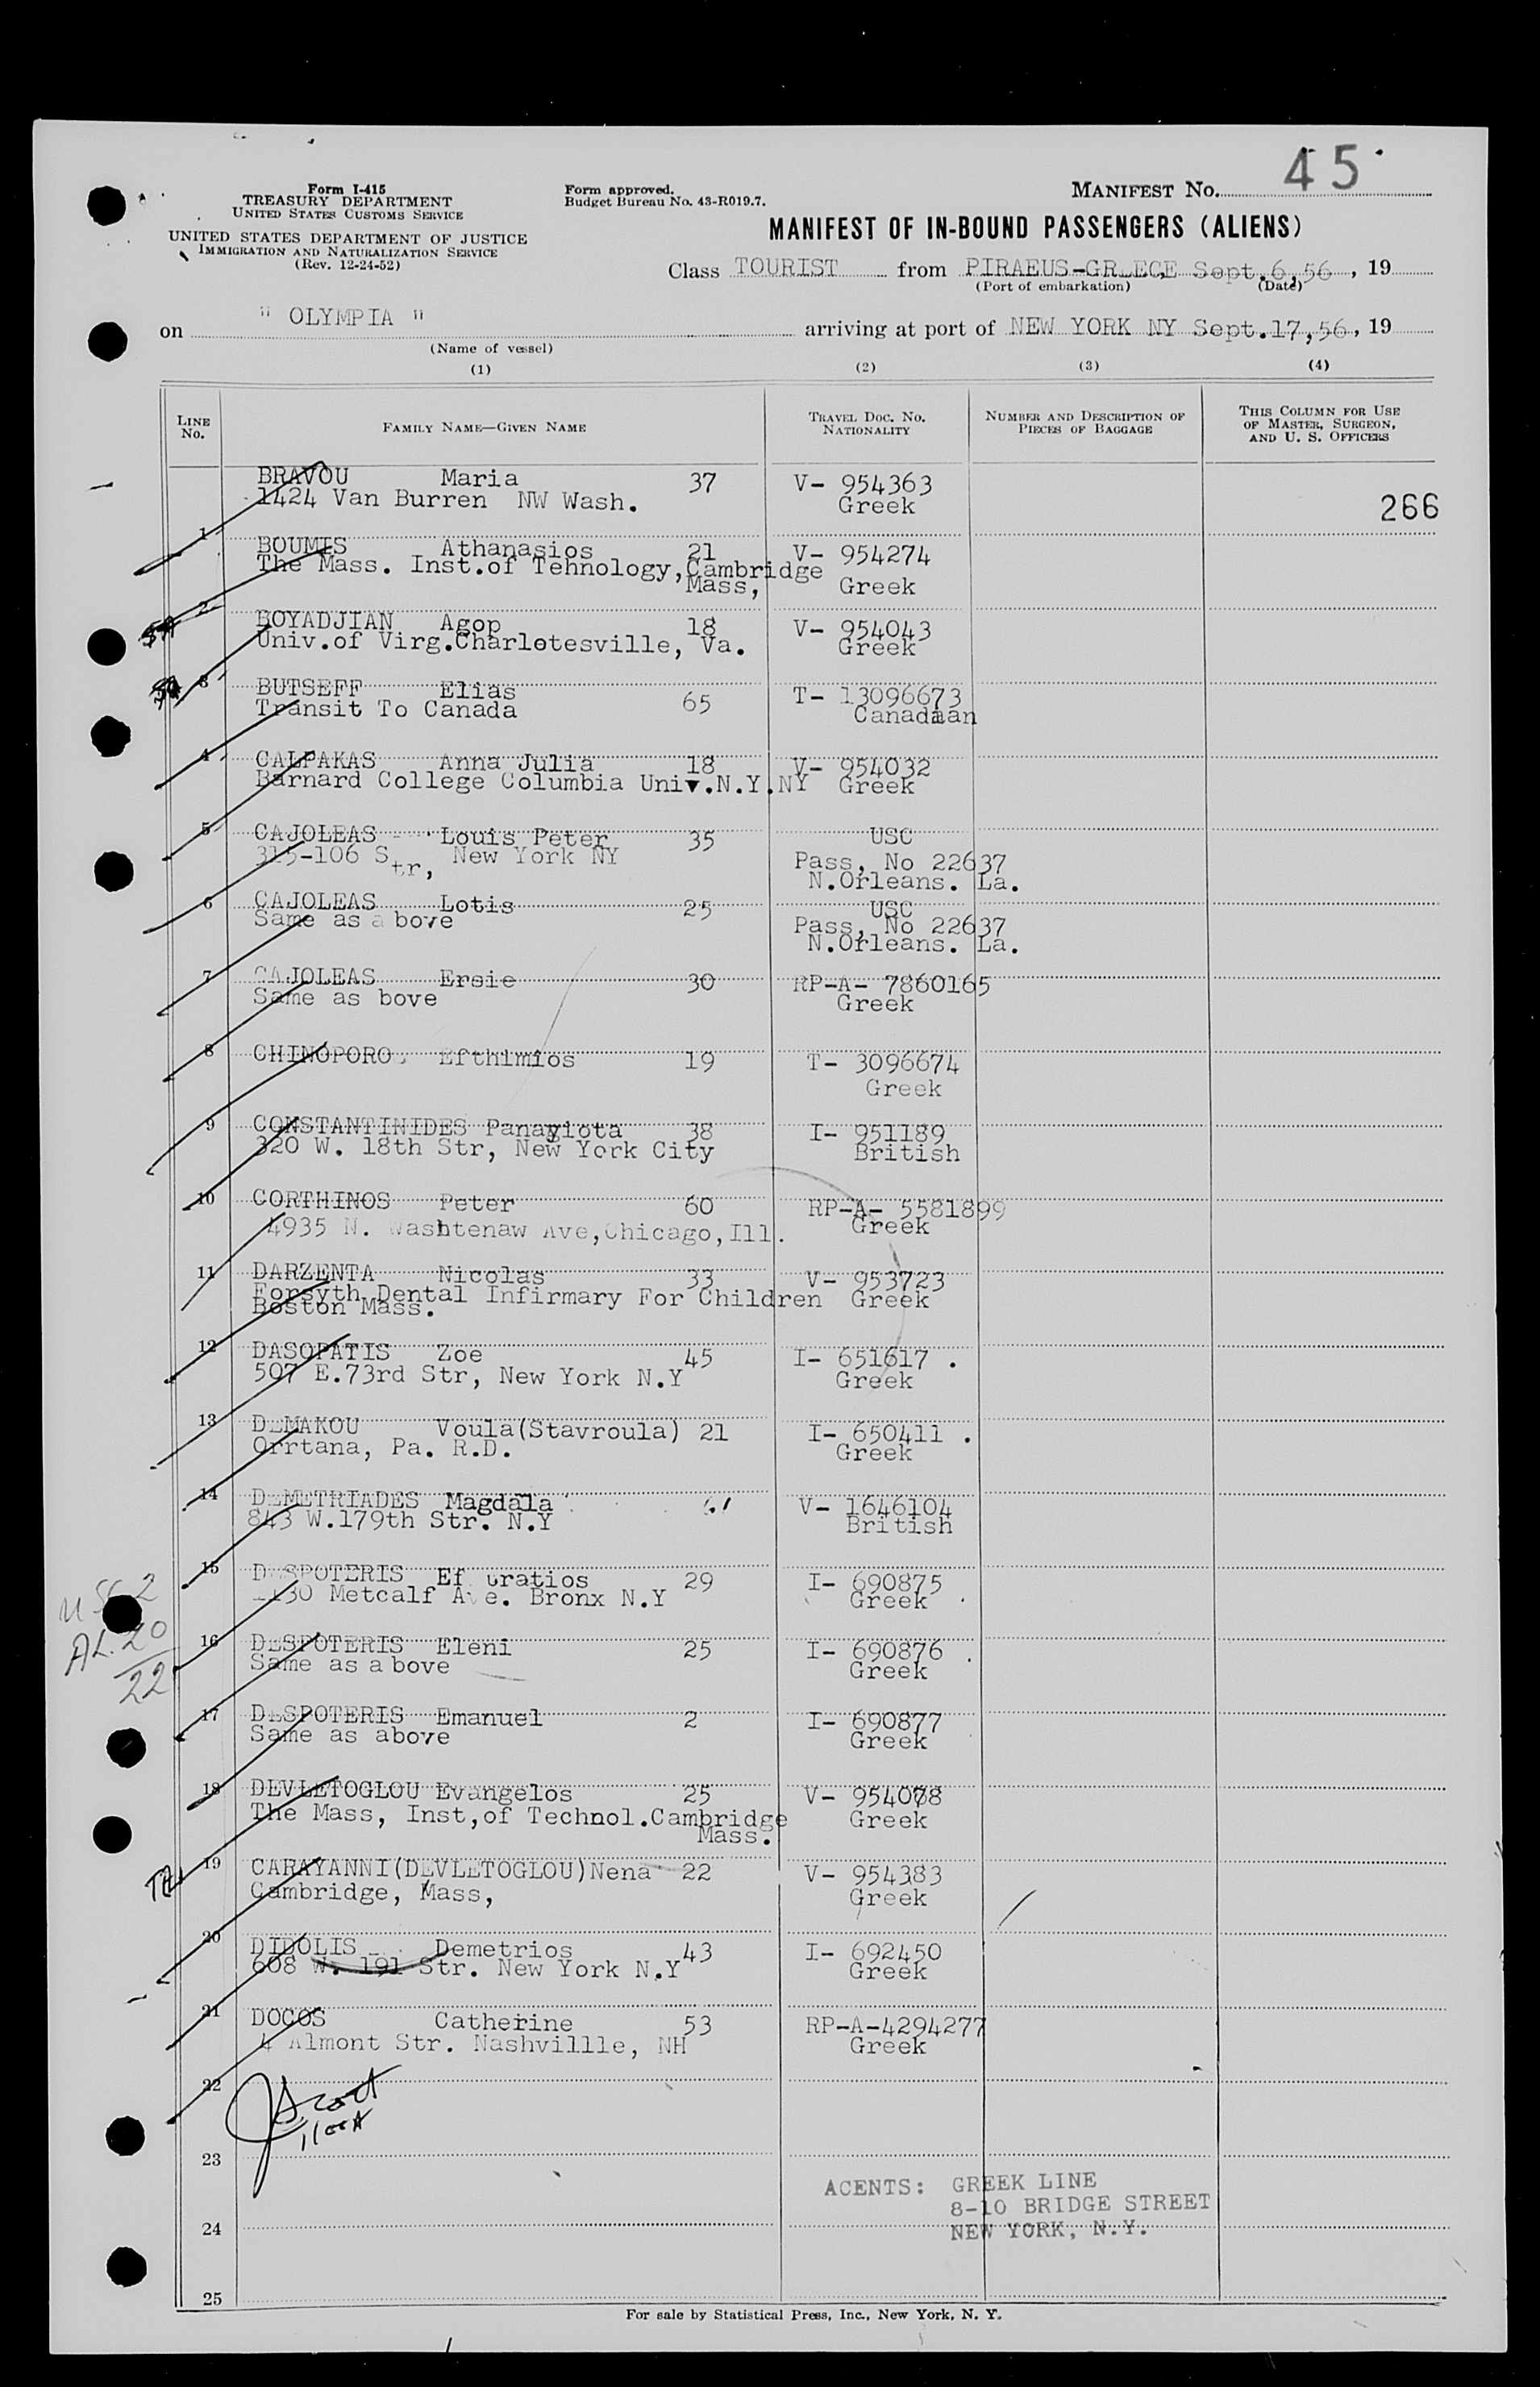 45
Form I-415
TREASURY DEPARTMENT
UNITED STATES CUSTOMS SERVICE
UNITED STATES DEPARTMENT OF JUSTICE
IMMIGRATION AND NATURALIZATION SERVICE
(Rev. 12-24-52)
Form approved.
Budget Bureau No. 43-R019.7.
MANIFEST No.
MANIFEST OF IN-BOUND PASSENGERS (ALIENS)
Class TOURIST from PIRAEUS-GREECE Sept.6,56, 19
(Port of embarkation) (Date)
on " OLYMPIA " arriving at port of NEW YORK NY Sept.17,56, 19
(Name of vessel)
(1) (2) (3) (4)
LINE No. FAMILY NAME—GIVEN NAME TRAVEL DOC. No. NATIONALITY NUMBER AND DESCRIPTION OF PIECES OF BAGGAGE THIS COLUMN FOR USE OF MASTER, SURGEON, AND U. S. OFFICERS
BRAVOU Maria 37 V- 954363
1424 Van Burren NW Wash. Greek 266
1
BOUMIS Athanasios 21 V- 954274
The Mass. Inst.of Tehnology,Cambridge
Mass, Greek
2
BOYADJIAN Agop 18 V- 954043
Univ.of Virg.Charlotesville, Va. Greek
3
BUTSEFF Elias 65 T- 13096673
Transit To Canada Canadian
4
CALPAKAS Anna Julia 18 V- 954032
Barnard College Columbia Univ.N.Y.NY Greek
5
CAJOLEAS Louis Peter 35 USC
315-106 Str, New York NY Pass, No 22637
N.Orleans. La.
6
CAJOLEAS Lotis 25 USC
Same as a bove Pass, No 22637
N.Orleans. La.
7
CAJOLEAS Ersie 30 RP-A- 7860165
Same as bove Greek
8
CHINOPOROS Efthimios 19 T- 3096674
Greek
9
CONSTANTINIDES Panayiota 38 I- 951189
320 W. 18th Str, New York City British
10
CORTHINOS Peter 60 RP-A- 5581899
4935 N. Washtenaw Ave,Chicago,Ill. Greek
11
DARZENTA Nicolas 33 V- 953723
Forsyth Dental Infirmary For Children Greek
Boston Mass.
12
DASOPATIS Zoe 45 I- 651617 .
507 E.73rd Str, New York N.Y Greek
13
DEMAKOU Voula(Stavroula) 21 I- 650411 .
Orrtana, Pa. R.D. Greek
14
DEMETRIADES Magdala V- 1646104
843 W.179th Str. N.Y British
15
DESPOTERIS Ef ratios 29 I- 690875
Metcalf Ave. Bronx N.Y Greek
16
DESPOTERIS Eleni 25 I- 690876 .
Same as a bove Greek
AL. 20
22
17
DESPOTERIS Emanuel 2 I- 690877
Same as above Greek
18
DEVLETOGLOU Evangelos 25 V- 954078
The Mass, Inst,of Technol.Cambridge Greek
Mass.
19
CARAYANNI(DEVLETOGLOU)Nena 22 V- 954383
Cambridge, Mass, Greek
20
DIDOLIS Demetrios 43 I- 692450
608 W. 191 Str. New York N.Y Greek
21
DOCOS Catherine 53 RP-A-4294277
4 Almont Str. Nashvillle, NH Greek
22
JScott
23
ACENTS: GREEK LINE
8-10 BRIDGE STREET
24
NEW YORK, N.Y.
25
For sale by Statistical Press, Inc., New York, N. Y.